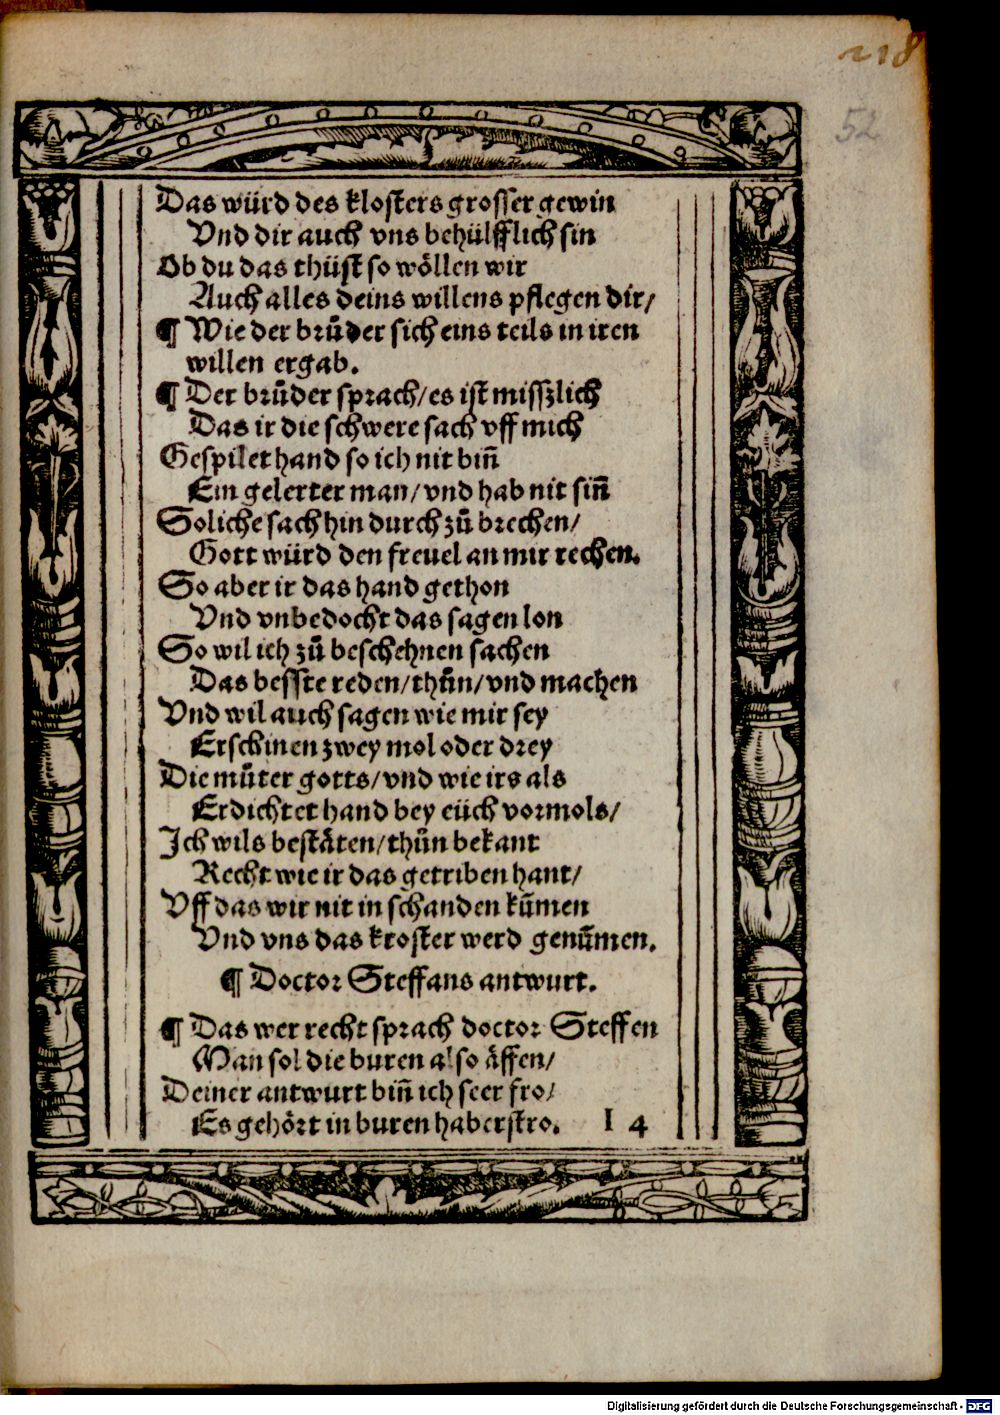 218
52
Das würd des klosters grosser gewin
Vnd dir auch vns behülfflich sin
Ob du das thüst so wöllen wir
Auch alles deins willens pflegen dir/
¶ Wie der brůder sich eins teils in iren
willen ergab.
¶ Der brůder sprach/es ist misszlich
Das ir die schwere sach vff mich
Gespilet hand so ich nit biñ
Ein gelerter man/vnd hab nit siñ
Soliche sach hin durch zů brechen/
Gott würd den freuel an mir rechen.
So aber ir das hand gethon
Vnd vnbedocht das sagen lon
So wil ich zů beschehnen sachen
Das besste reden/thůn/vnd machen
Vnd wil auch sagen wie mir sey
Erschinen zwey mol oder drey
Die můter gotts/vnd wie irs als
Erdichtet hand bey eüch vormols/
Ich wils bestäten/thůn bekant
Recht wie ir das getriben hant/
Vff das wir nit in schanden kům̃en
Vnd vns das kroster werd genům̃en.
¶ Doctor Steffans antwurt.
¶ Das wer recht sprach doctor Steffen
Man sol die buren also äffen/
Deiner antwurt biñ ich seer fro/
Es gehört in buren haberstro. I 4
Digitalisierung gefördert durch die Deutsche Forschungsgemeinschaft - DFG